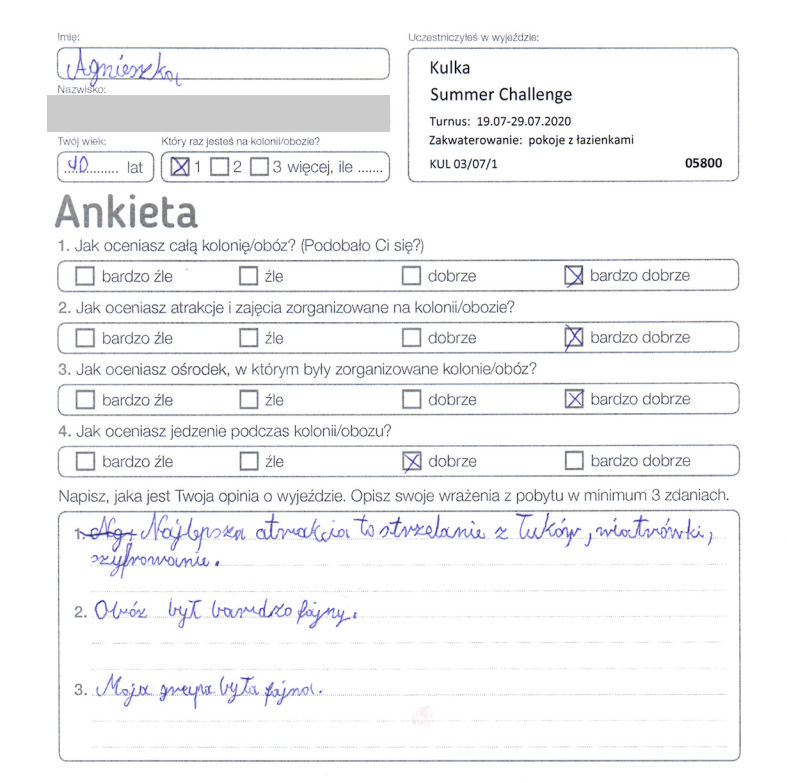 Imię:
Agnieszka
Nazwisko:
Twój wiek:
10 lat
Który raz jesteś na kolonii/obozie?
1 2 3 więcej, ile .......
Uczestniczyłeś w wyjeździe:
Kulka
Summer Challenge
Turnus: 19.07-29.07.2020
Zakwaterowanie: pokoje z łazienkami
KUL 03/07/1 05800
Ankieta
1. Jak oceniasz całą kolonię/obóz? (Podobało Ci się?)
bardzo źle źle dobrze bardzo dobrze
2. Jak oceniasz atrakcje i zajęcia zorganizowane na kolonii/obozie?
bardzo źle źle dobrze bardzo dobrze
3. Jak oceniasz ośrodek, w którym były zorganizowane kolonie/obóz?
bardzo źle źle dobrze bardzo dobrze
4. Jak oceniasz jedzenie podczas kolonii/obozu?
bardzo źle źle dobrze bardzo dobrze
Napisz, jaka jest Twoja opinia o wyjeździe. Opisz swoje wrażenia z pobytu w minimum 3 zdaniach.
1. Najlepsza atrakcia to strzelanie z łuków, wiatrówki,
szyfrowanie.
2. Obóz był bardzo fajny.
3. Moja grupa była fajna.